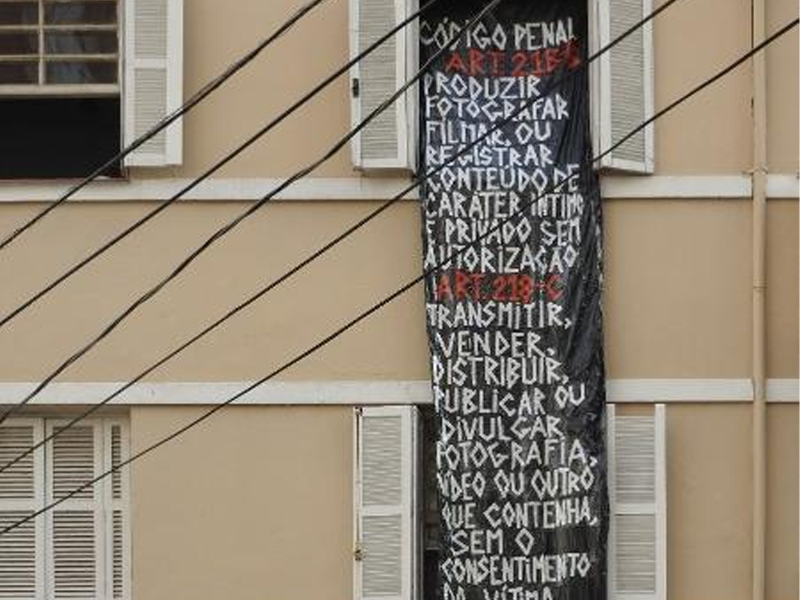 CÓDIGO PENAL
ART 216-B
PRODUZIR
FOTOGRAFAR
FILMAR, OU
REGISTRAR
CONTEÚDO DE
CARÁTER ÍNTIMO
E PRIVADO SEM
AUTORIZAÇÃO
ART. 218-C
TRANSMITIR,
VENDER,
DISTRIBUIR,
PUBLICAR OU
DIVULGAR
FOTOGRAFIA,
VÍDEO OU OUTRO
QUE CONTENHA,
SEM O
CONSENTIMENTO
DA VÍTIMA